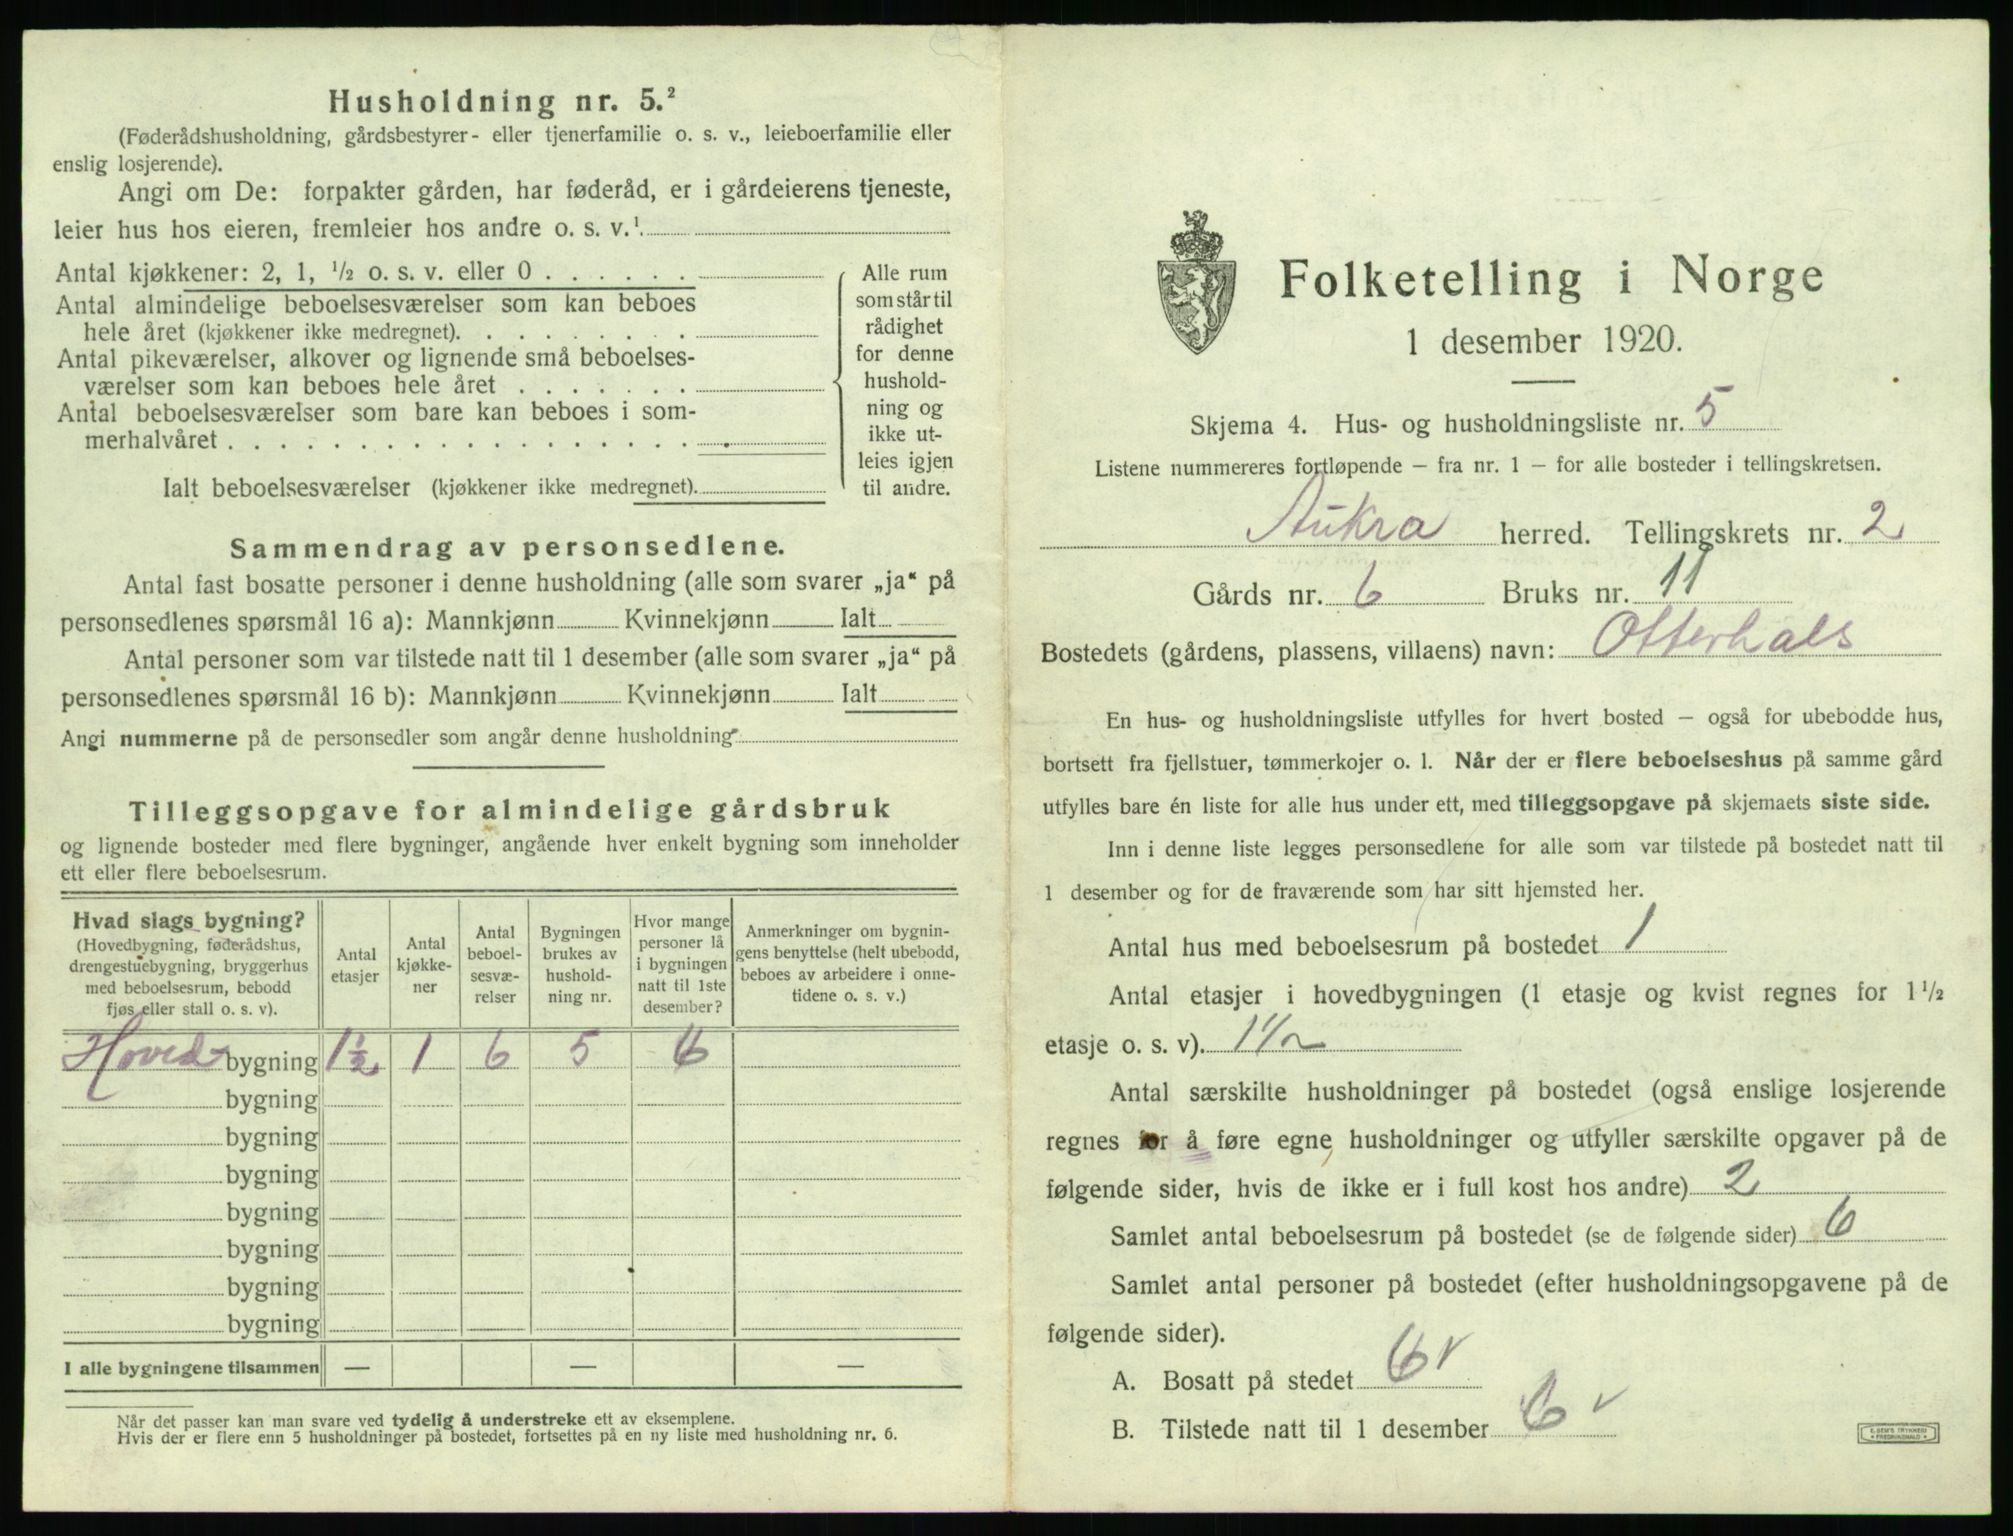 Husholdning nr. 5.²
(Føderådshusholdning, gårdsbestyrer- eller tjenerfamilie o. s. v., leieboerfamilie eller
enslig losjerende).
Angi om De: forpakter gården, har føderåd, er i gårdeierens tjeneste,
leier hus hos eieren, fremleier hos andre o. s. v.¹
Antal kjøkkener: 2, 1, ½ o. s. v. eller 0 . . . . . .
Antal almindelige beboelsesværelser som kan beboes
hele året (kjøkkener ikke medregnet). . . . . . . . .
Antal pikeværelser, alkover og lignende små beboelses-
værelser som kan beboes hele året . . . . . . .
Antal beboelsesværelser som bare kan beboes i som-
merhalvåret . . . . . . . . . . . . . . . . . .
Ialt beboelsesværelser (kjøkkener ikke medregnet).
Alle rum
som står til
rådighet
for denne
hushold-
ning og
ikke ut-
leies igjen
til andre.
Sammendrag av personsedlene.
Antal fast bosatte personer i denne husholdning (alle som svarer „ja“ på
personsedlenes spørsmål 16 a): Mannkjønn Kvinnekjønn Ialt
Antal personer som var tilstede natt til 1 desember (alle som svarer „ja“ på
personsedlenes spørsmål 16 b): Mannkjønn Kvinnekjønn Ialt
Angi nummerne på de personsedler som angår denne husholdning
Tilleggsopgave for almindelige gårdsbruk
og lignende bosteder med flere bygninger, angående hver enkelt bygning som inneholder
ett eller flere beboelsesrum.
Hvad slags bygning?
(Hovedbygning, føderådshus,
drengestuebygning, bryggerhus
med beboelsesrum, bebodd
fjøs eller stall o. s. v).
Antal
etasjer
Antal
kjøkke-
ner
Antal
beboel-
sesvæ-
relser
Bygningen
brukes av
hushold-
ning nr.
Hvor mange
personer lå
i bygningen
natt til 1ste
desember?
Anmerkninger om bygnin-
gens benyttelse (helt ubebodd,
beboes av arbeidere i onne-
tidene o. s. v.)
Hoved- bygning 1½ 1 6 5 6
bygning
bygning
bygning
bygning
bygning
bygning
bygning
I alle bygningene tilsammen — — —
Når det passer kan man svare ved tydelig å understreke ett av eksemplene.
Hvis der er flere enn 5 husholdninger på bostedet, fortsettes på en ny liste med husholdning nr. 6.
Folketelling i Norge
1 desember 1920.
Skjema 4. Hus- og husholdningsliste nr. 5
Listene nummereres fortløpende — fra nr. 1 — for alle bosteder i tellingskretsen.
Aukra herred. Tellingskrets nr. 2
Gårds nr. 6 Bruks nr. 11
Bostedets (gårdens, plassens, villaens) navn: Otterhals
En hus- og husholdningsliste utfylles for hvert bosted — også for ubebodde hus,
bortsett fra fjellstuer, tømmerkojer o. l. Når der er flere beboelseshus på samme gård
utfylles bare én liste for alle hus under ett, med tilleggsopgave på skjemaets siste side.
Inn i denne liste legges personsedlene for alle som var tilstede på bostedet natt til
1 desember og for de fraværende som har sitt hjemsted her.
Antal hus med beboelsesrum på bostedet 1
Antal etasjer i hovedbygningen (1 etasje og kvist regnes for 1½
etasje o. s. v). 1½
Antal særskilte husholdninger på bostedet (også enslige losjerende
regnes for å føre egne husholdninger og utfyller særskilte opgaver på de
følgende sider, hvis de ikke er i full kost hos andre) 2
Samlet antal beboelsesrum på bostedet (se de følgende sider) 6
Samlet antal personer på bostedet (efter husholdningsopgavene på de
følgende sider).
A. Bosatt på stedet 6 ✓
B. Tilstede natt til 1 desember 6 ✓
E. SEM'S TRYKKERI
FREDRIKSHALD